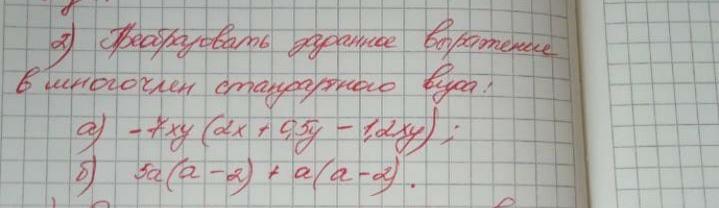 2) Преобразовать заданное выражение
в многочлен стандартного вида:
а) -7xy (2x + 0,5y - 1,2xy) ;
б) 5a(a-2) + a(a-2).